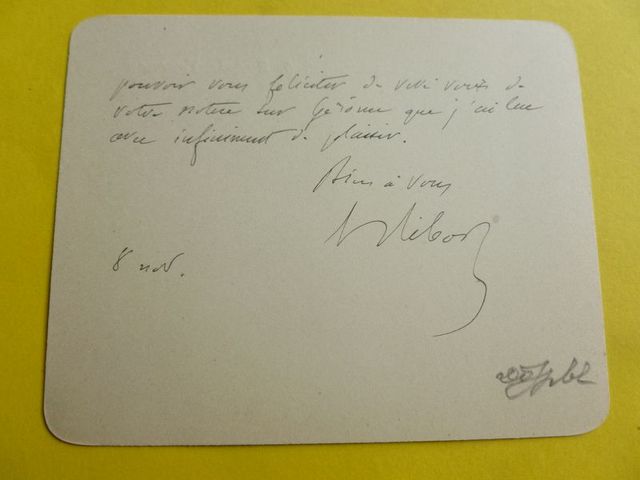 pouvoir vous feliciter de vive voix de
votre notice sur Gérôme que j'ai lue
avec infiniment de plaisir.
Bien à vous
8 nov.